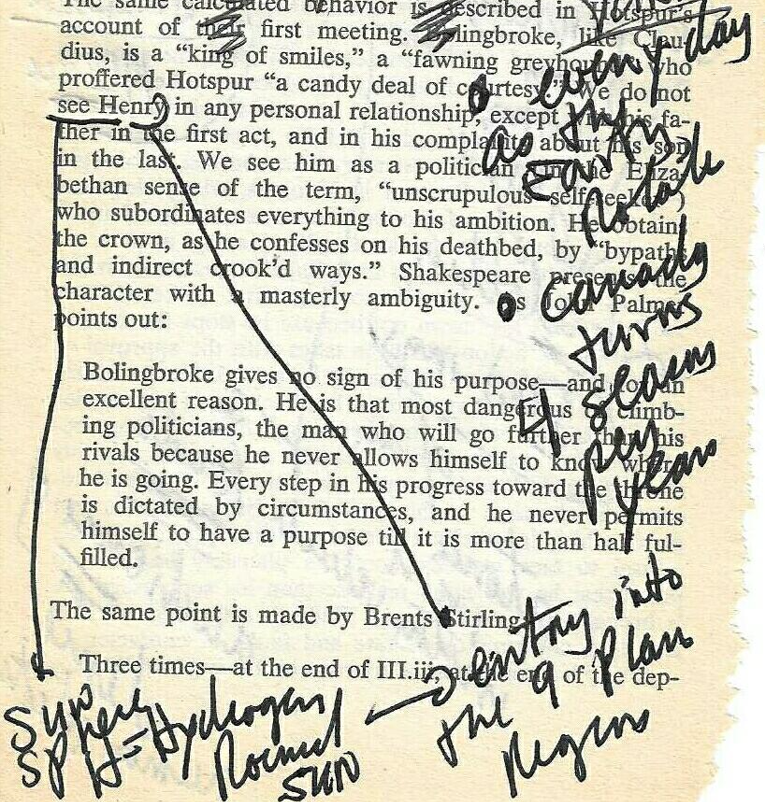 The same calculated behavior is described in Hotspur's
account of their first meeting. Bolingbroke, like Clau-
dius, is a “king of smiles,” a “fawning greyhound” who
proffered Hotspur “a candy deal of courtesy.” We do not
see Henry in any personal relationship, except with his fa-
ther in the first act, and in his complaints about his son
in the last. We see him as a politician (in the Eliza-
bethan sense of the term, “unscrupulous self-seeker”)
who subordinates everything to his ambition. He obtains
the crown, as he confesses on his deathbed, by “bypaths
and indirect crook'd ways.” Shakespeare presents the
character with a masterly ambiguity. As John Palmer
points out:
Bolingbroke gives no sign of his purpose—and for an
excellent reason. He is that most dangerous of climb-
ing politicians, the man who will go further than his
rivals because he never allows himself to know where
he is going. Every step in his progress toward the throne
is dictated by circumstances, and he never permits
himself to have a purpose till it is more than half ful-
filled.
The same point is made by Brents Stirling:
Three times—at the end of III.iii, at the end of the dep-
every day
as the
Earth
Rotate
canada
turns
4 seasons
per
years
entry into
the 9 Plan
Region
Sun
Sphere
H=Hydrogen
Round
sun